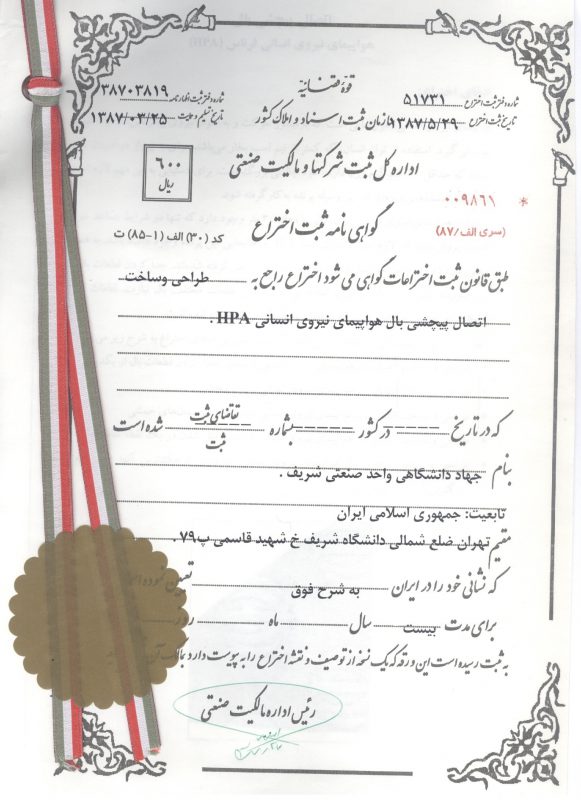 قوهٔ قضائیه
شماره دفتر ثبت اختراع ۵۱۷۳۱
شماره دفتر ثبت اظهارنامه ۳۸۷۰۳۸۱۹
تاریخ ثبت اختراع ۱۳۸۷/۵/۲۹
سازمان ثبت اسناد و املاک کشور
تاریخ تسلیم ۱۳۸۷/۰۳/۲۵
اداره کل ثبت شرکتها و مالکیت صنعتی
۶۰۰
ریال
* ۰۰۹۸۶۱
(سری الف/۸۷)
گواهی نامه ثبت اختراع
کد (۳۰) الف (۱-۸۵) ت
طبق قانون ثبت اختراعات گواهی می شود اختراع راجع به طراحی وساخت
اتصال پیچشی بال هواپیمای نیروی انسانی HPA .
که در تاریخ ----- در کشور ----- بشماره ----- تقاضای ثبت شده است
ثبت
بنام جهاد دانشگاهی واحد صنعتی شریف .
تابعیت: جمهوری اسلامی ایران
مقیم تهران ضلع شمالی دانشگاه شریف خ شهید قاسمی پ۷۹.
که نشانی خود را در ایران به شرح فوق تعیین نموده
برای مدت بیست سال ماه روز
به ثبت رسیده است این ورقه که یک نسخه از توصیف و نقشه اختراع را به پیوست دارد
رئیس اداره مالکیت صنعتی